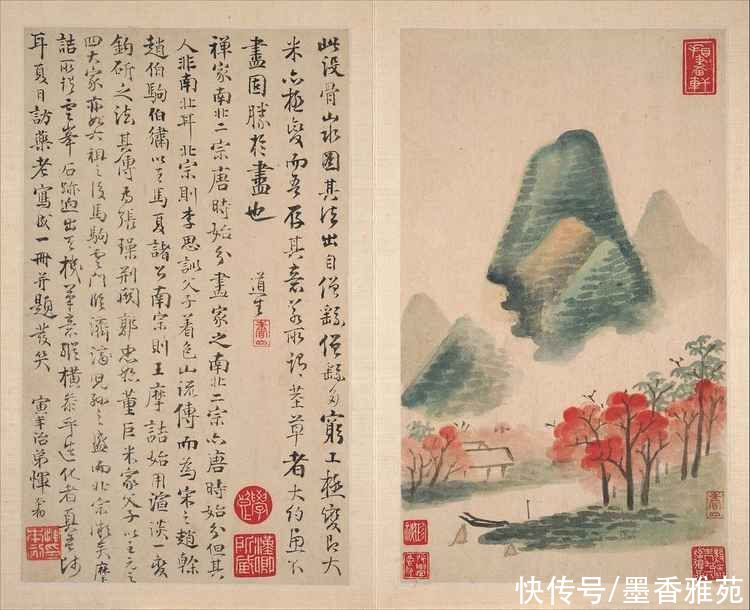 此没骨山水圖其法出自僧繇僧繇多窮工極變即大
米亦極變而吾存其意若所謂 草者大約 不
畫固勝於畫也
道生
禅家南北二宗唐時始分畫家之南北二宗亦唐時始分但其
人非南北耳北宗則李思訓父子着色山流傳而為宋之趙幹
趙伯駒伯驌以至馬夏諸公南宗則王摩詰始用渲淡一變
鈎斫之法其傳為張璪荆關郭忠恕董巨米家父子以至元之
四大家亦如六祖之後馬駒雲門臨濟 兒孫之盛而北宗漸矣摩
詰所謂雲峯石跡迥出天機筆意縱橫參乎造化者真
耳夏日訪藥老寫成一冊并題發笑
治弟惲
漢卿所藏
快传号/墨香雅苑